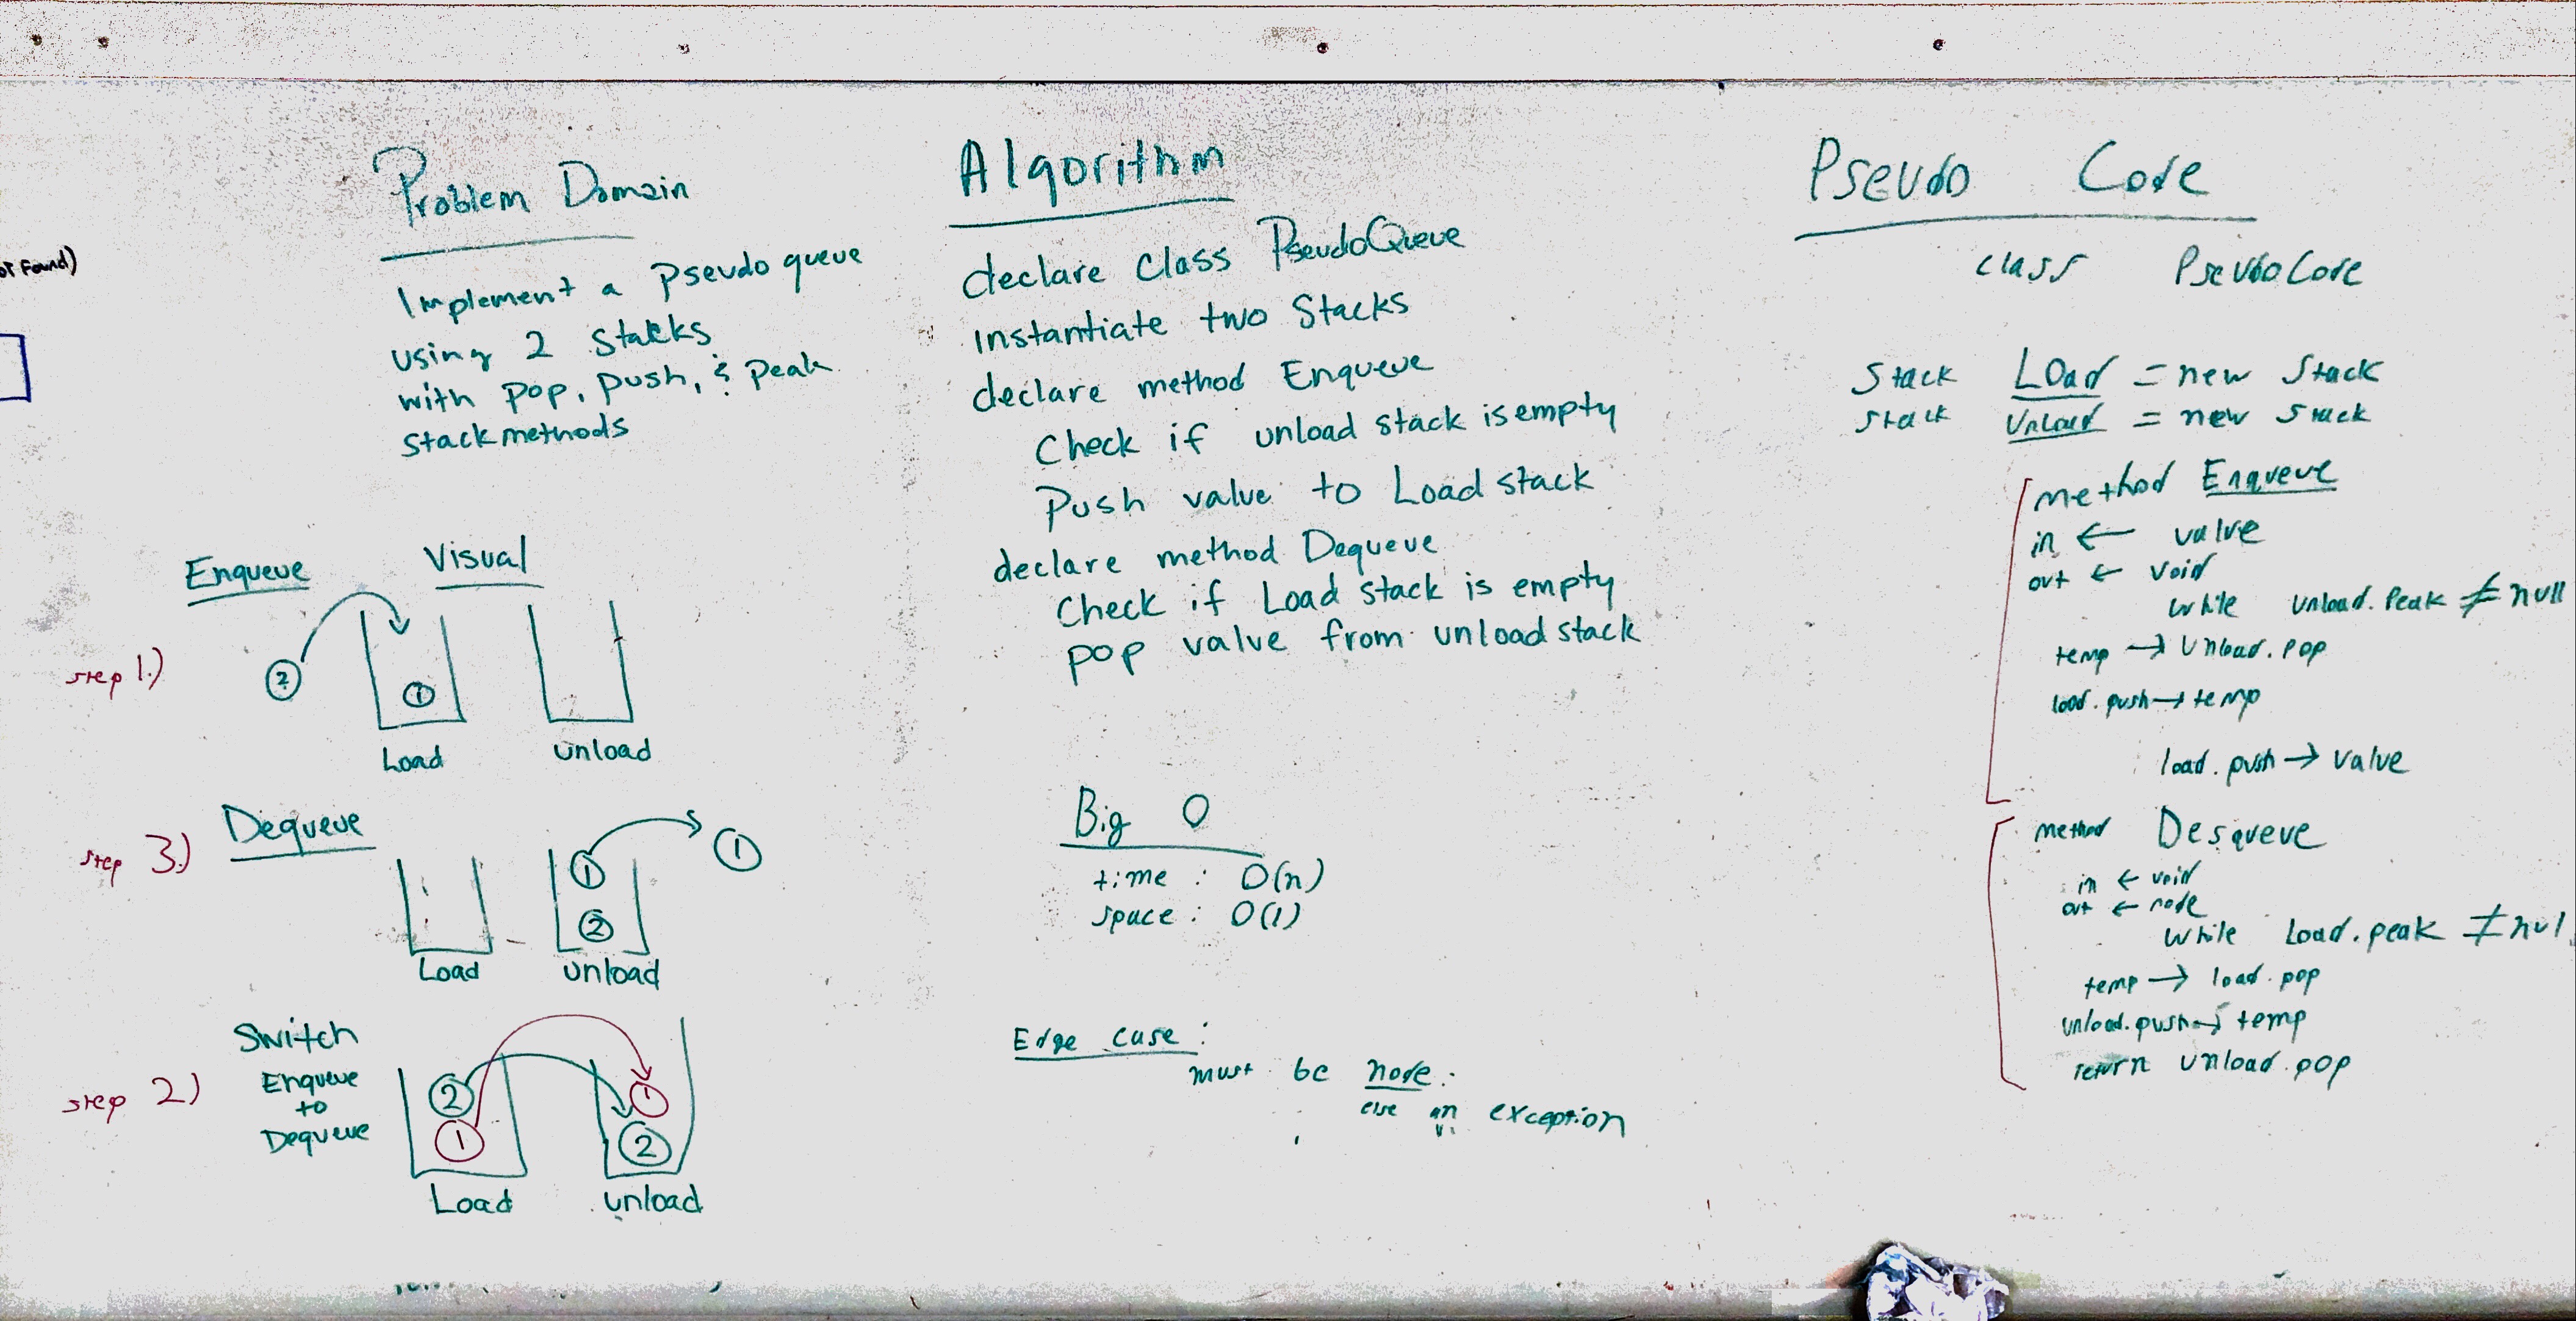 ot Found)
Problem Domain
Implement a Pseudo queue
using 2 Stacks
with pop, push, & Peak
Stack methods
Enqueue
Visual
step 1.)
2
1
Load
unload
Dequeue
step 3.)
1
1
2
Load
unload
Switch
Enqueue
to
Dequeue
step 2)
2
1
1
2
Load
unload
Algorithm
declare Class PseudoQueue
Instantiate two Stacks
declare method Enqueue
Check if unload stack is empty
Push value to Load stack
declare method Dequeue
Check if Load stack is empty
pop value from unload stack
Big O
time : O(n)
space : O(1)
Edge case :
must be node.
else an exception
Pseudo Code
class PseudoCode
Stack Load = new Stack
Stack Unload = new Stack
method Enqueue
in ← value
out ← void
while Unload.Peak ≠ null
temp → Unload.pop
load.push → temp
load.push → value
method Desqueue
in ← void
out ← node
while Load.peak ≠ nul
temp → load.pop
unload.push → temp
return unload.pop